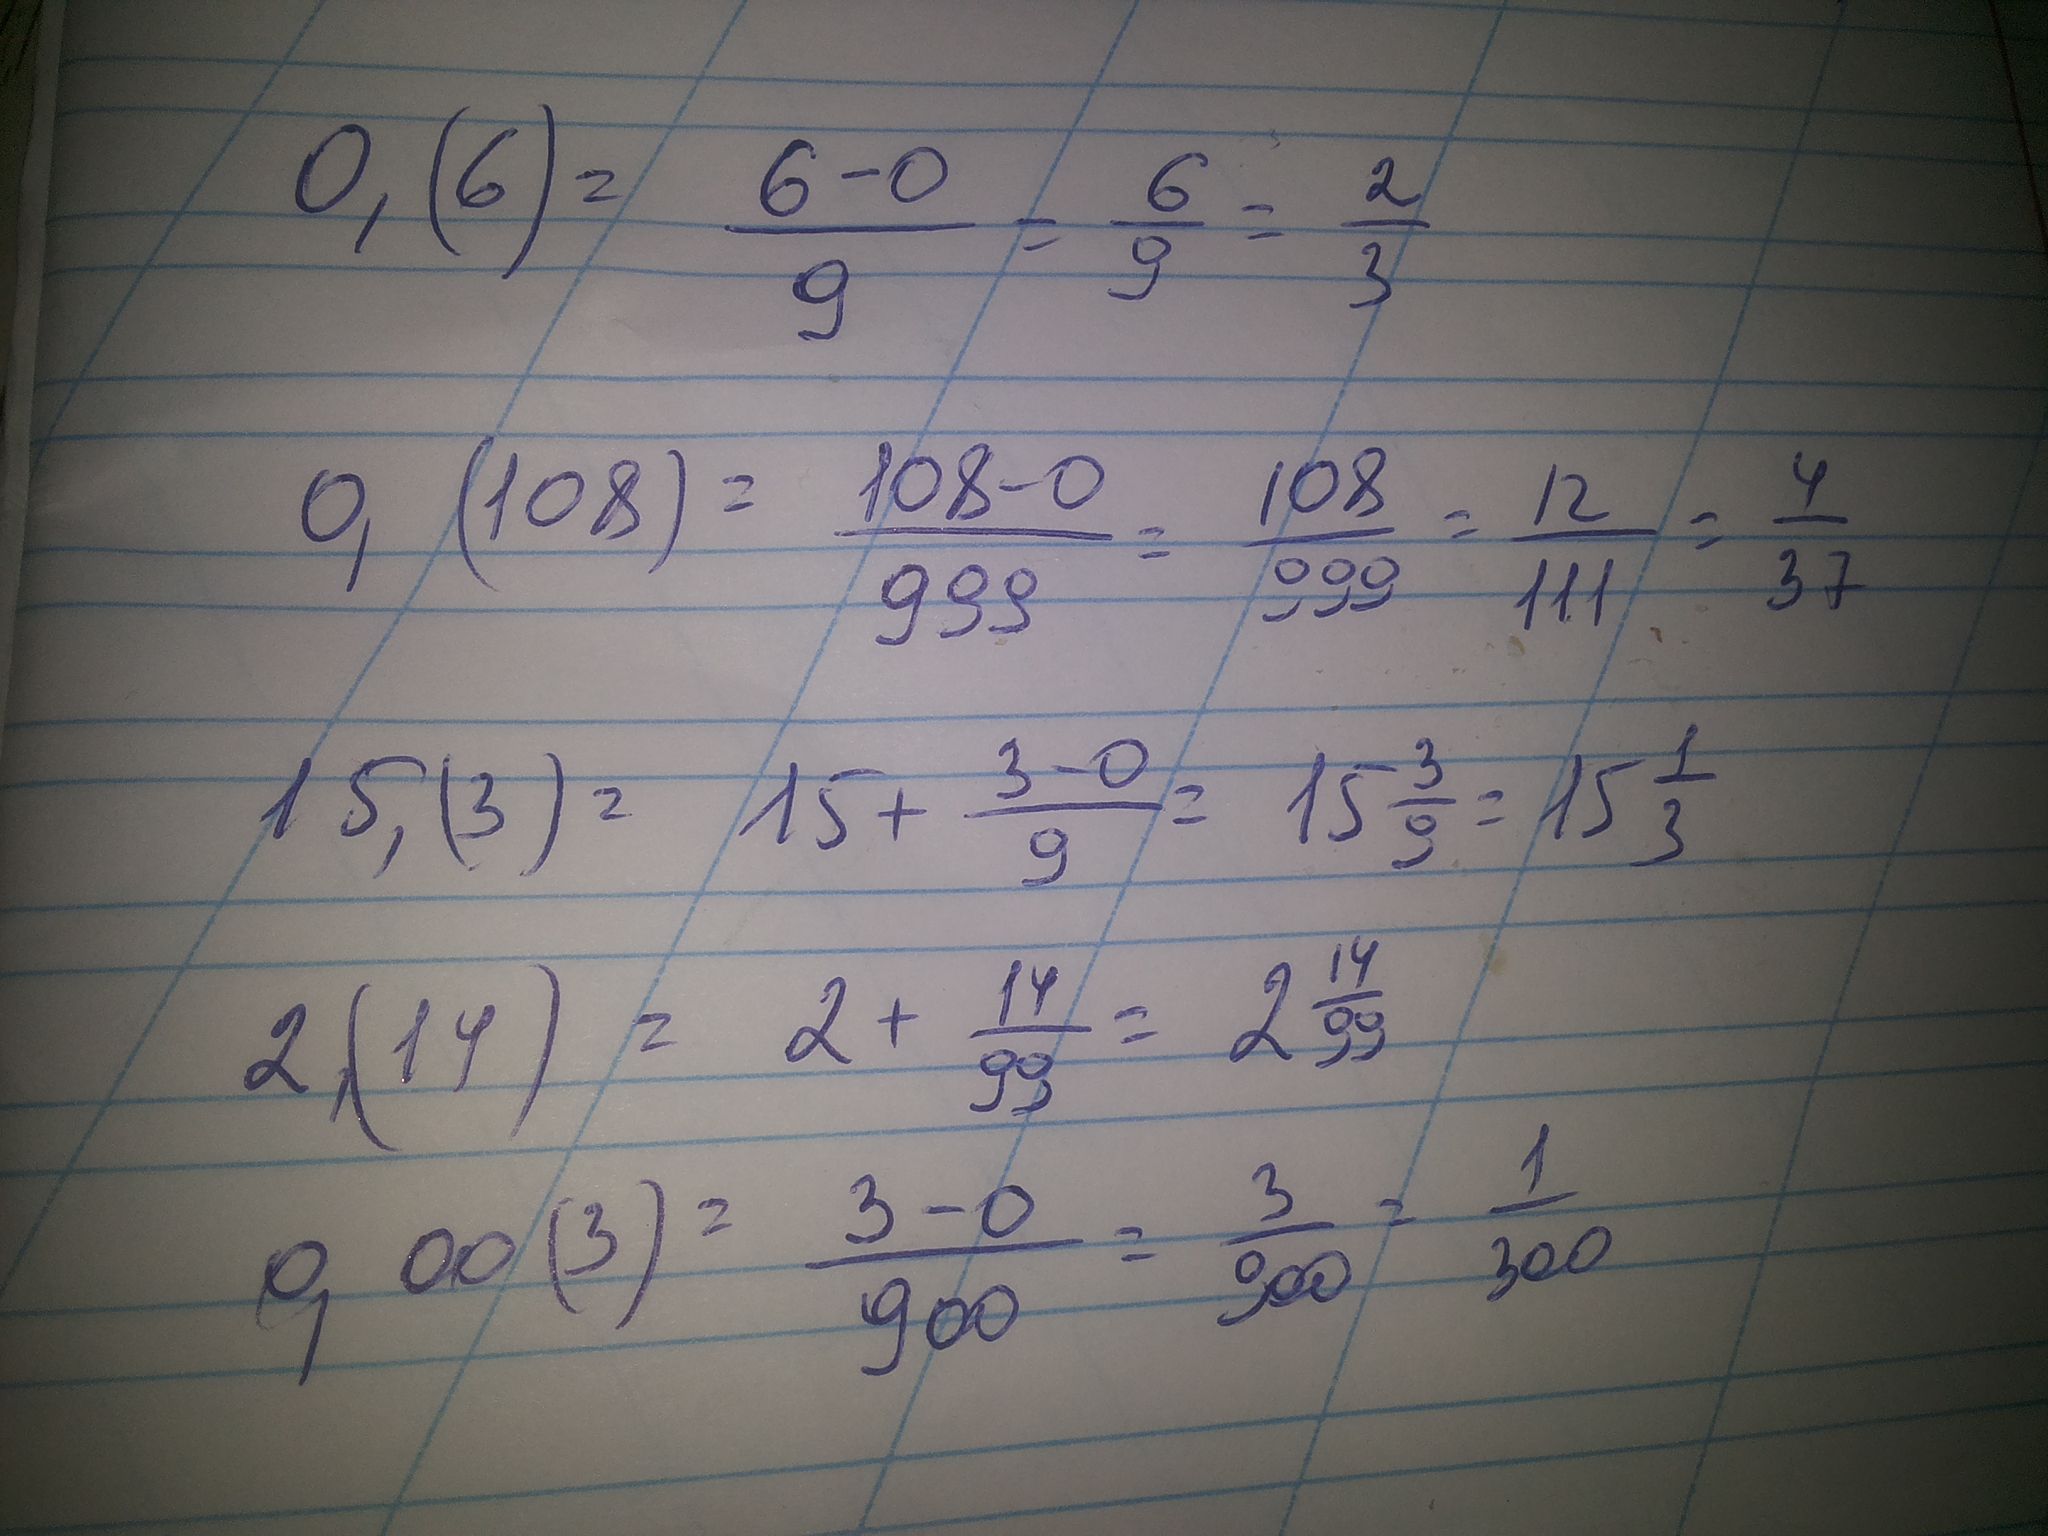 0,(6) = \frac{6-0}{9} = \frac{6}{9} = \frac{2}{3}
0,(108) = \frac{108-0}{999} = \frac{108}{999} = \frac{12}{111} = \frac{4}{37}
15,(3) = 15 + \frac{3-0}{9} = 15\frac{3}{9} = 15\frac{1}{3}
2,(14) = 2 + \frac{14}{99} = 2\frac{14}{99}
0,00(3) = \frac{3-0}{900} = \frac{3}{900} = \frac{1}{300}